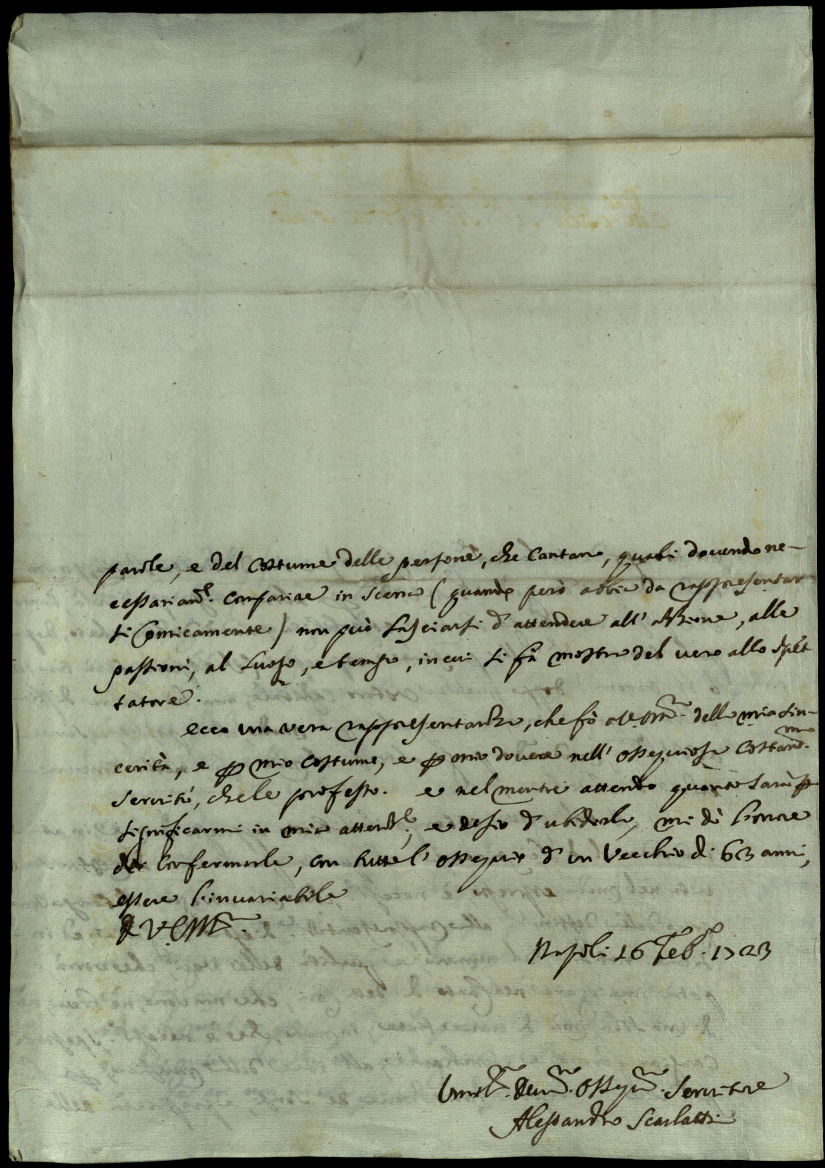 parole, e del costume delle persone, che cantano, quali dovendo ne-
cessariam.e comparire in scena (quando però abbia da rappresentar
si comicamente) non può lasciarsi d'attendere all'azzione, alle
passioni, al luogo, e tempo, in cui si fà mostra del vero allo spet
tatore.
ecco una vera rappresentanza, che fò della mia sin-
cerità, e p mio costume, e p mio dovere nell'ossequiosa
servitù, che le professo. e nel mentre attendo quanto sarà p
significarmi in mia attenz.e, e desio d'ubidirla, mi dò l'onore
di confermarle, con tutto l'ossequio d'un Vecchio di 63 anni,
essere l'invariabile
Napoli 16 Feb.o 1723
Umil.mo Dev.mo Osseq.mo Servitore
Alessandro Scarlatti